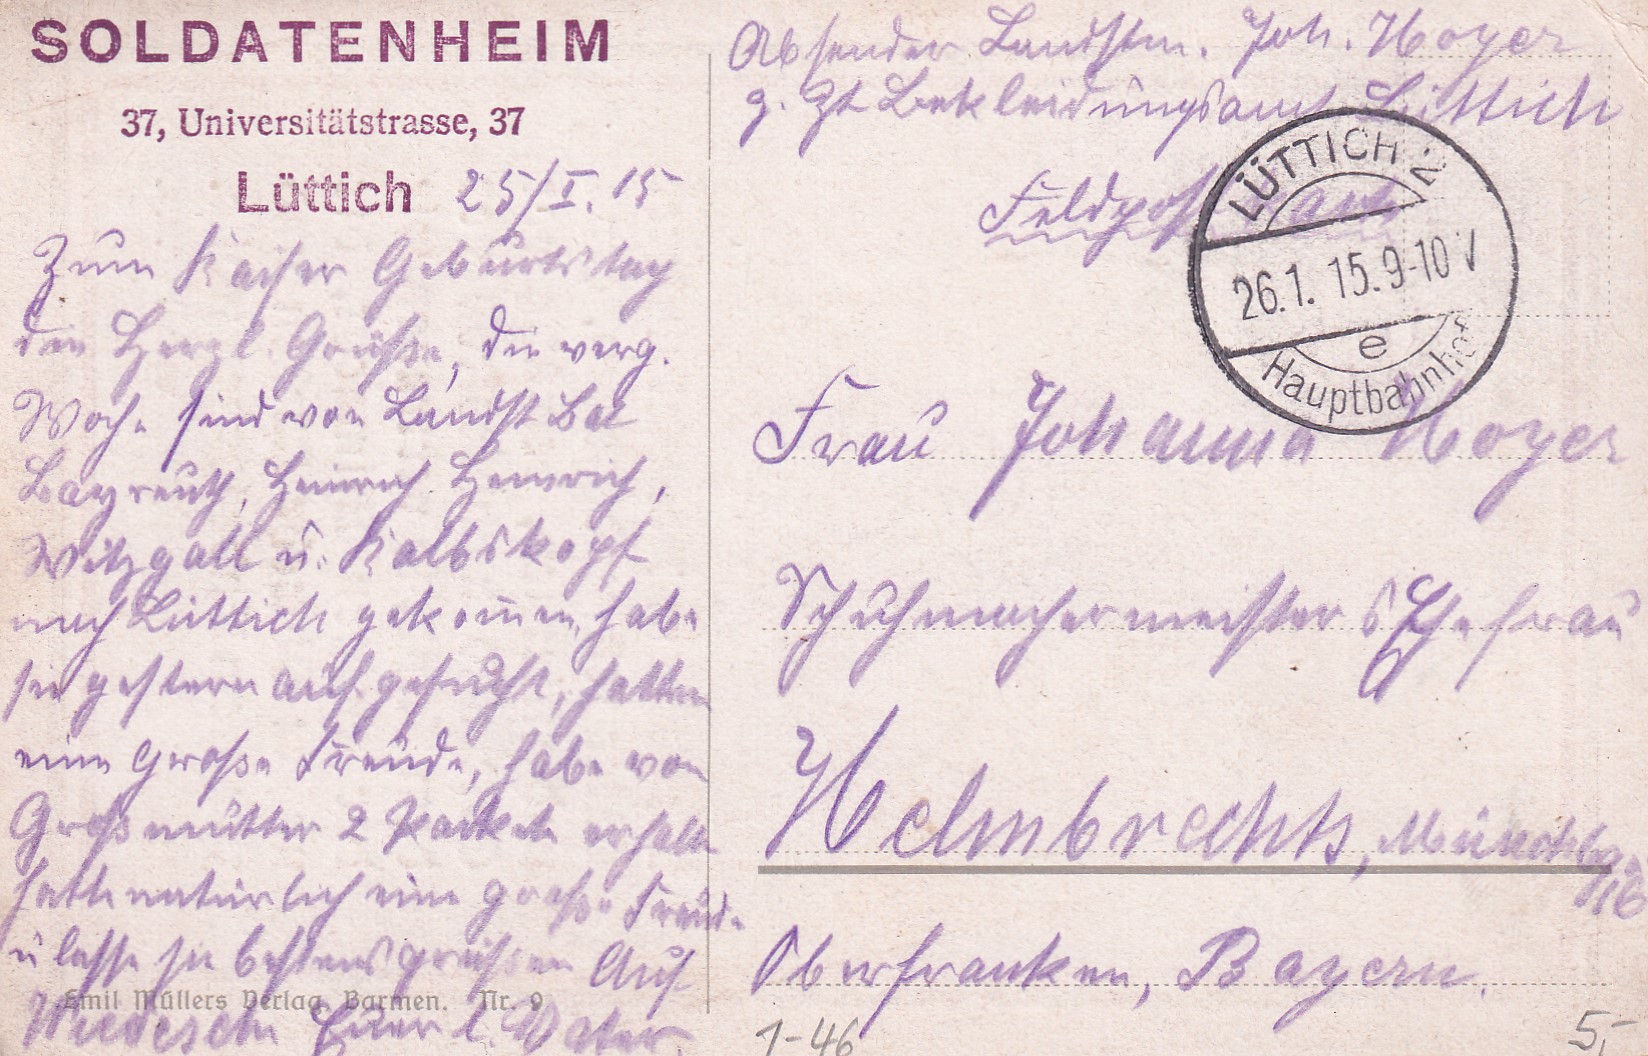 SOLDATENHEIM
37, Universitätstrasse, 37
Lüttich 25/I.15
Zum Kaiser Geburtstag
die Herzl. Grüße, die verg.
Woche sind von Landst Bat
Bayreuth, Heinrich Heinrich,
Witzgall u. Kalbskopf
nach Lüttich gekommen, habe
sie gestern aufgesucht, hatten
eine große Freude, habe von
Großmutter 2 Packete erhalten
hatte natürlich eine große Freude
u lasse sie bestens grüßen Auf
Wiedersehn Euer l. Vater.
Emil Müllers Verlag, Barmen. Nr. 9
Absender Landstm. Joh. Hoyer
z. Zt Bekleidungsamt Lüttich
Feldpost
LÜTTICH 2
26.1.15.9-10V
e
Hauptbahnhof
Frau Johanna Hoyer
Schuhmachermeisters Ehefrau
Helmbrechts, Münchbg.
Oberfranken, Bayern.
1-46
5,-